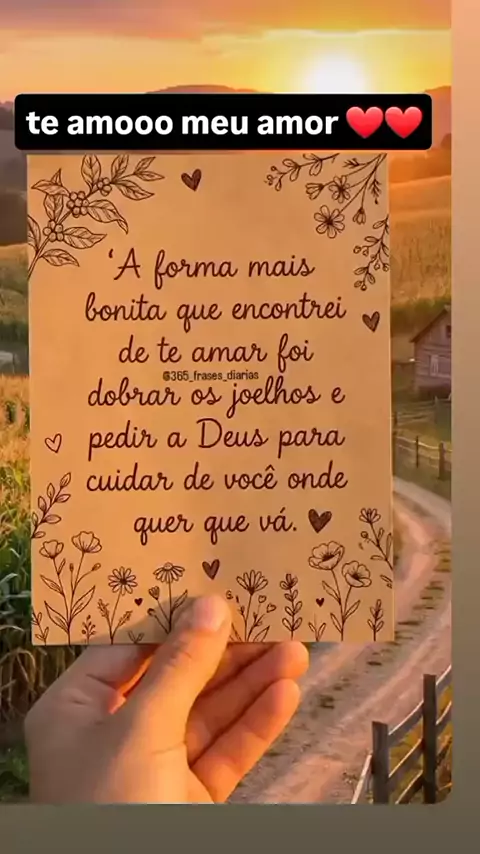 te amooo meu amor ❤️❤️
'A forma mais
bonita que encontrei
de te amar foi
@365_frases_diarias
dobrar os joelhos e
pedir a Deus para
cuidar de você onde
quer que vá.